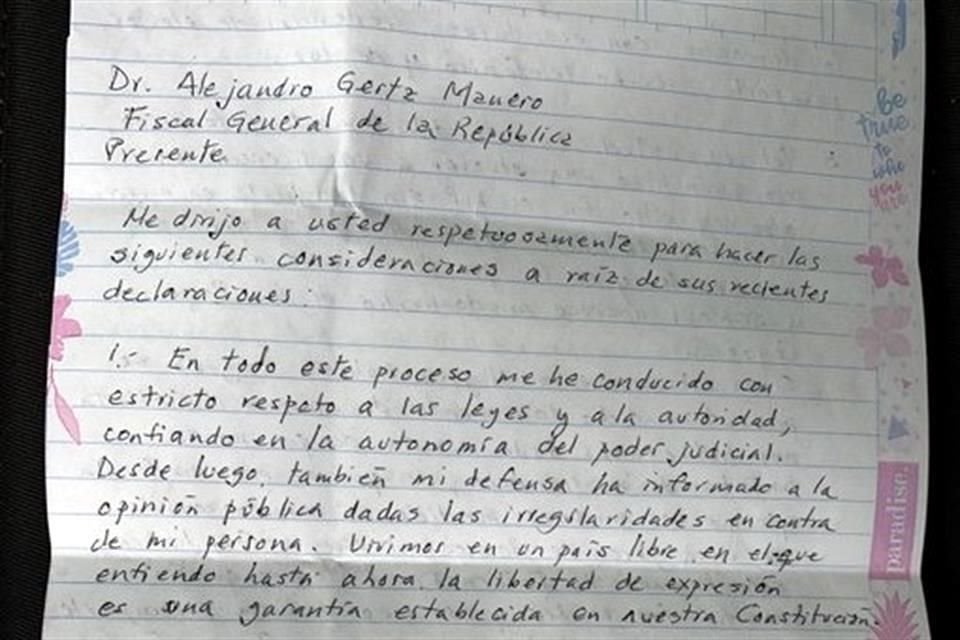 Dr. Alejandro Gertz Manero
Fiscal General de la República
Presente
Me dirijo a usted respetuosamente para hacer las
siguientes consideraciones a raíz de sus recientes
declaraciones:
1.- En todo este proceso me he conducido con
estricto respeto a las leyes y a la autoridad,
confiando en la autonomía del poder judicial.
Desde luego, también mi defensa ha informado a la
opinión pública dadas las irregularidades en contra
de mi persona. Vivimos en un país libre en el que
entiendo hasta ahora la libertad de expresión
es una garantía establecida en nuestra Constitución.
Be
true
to
who
you
are
paradise.